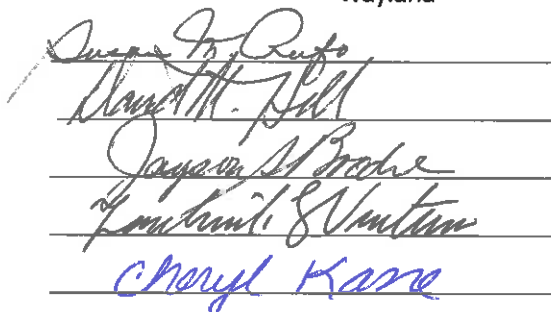 Wayland
Susan M. Rufo
David M. Hill
Jayson S Brodie
Ventura
Cheryl Kane